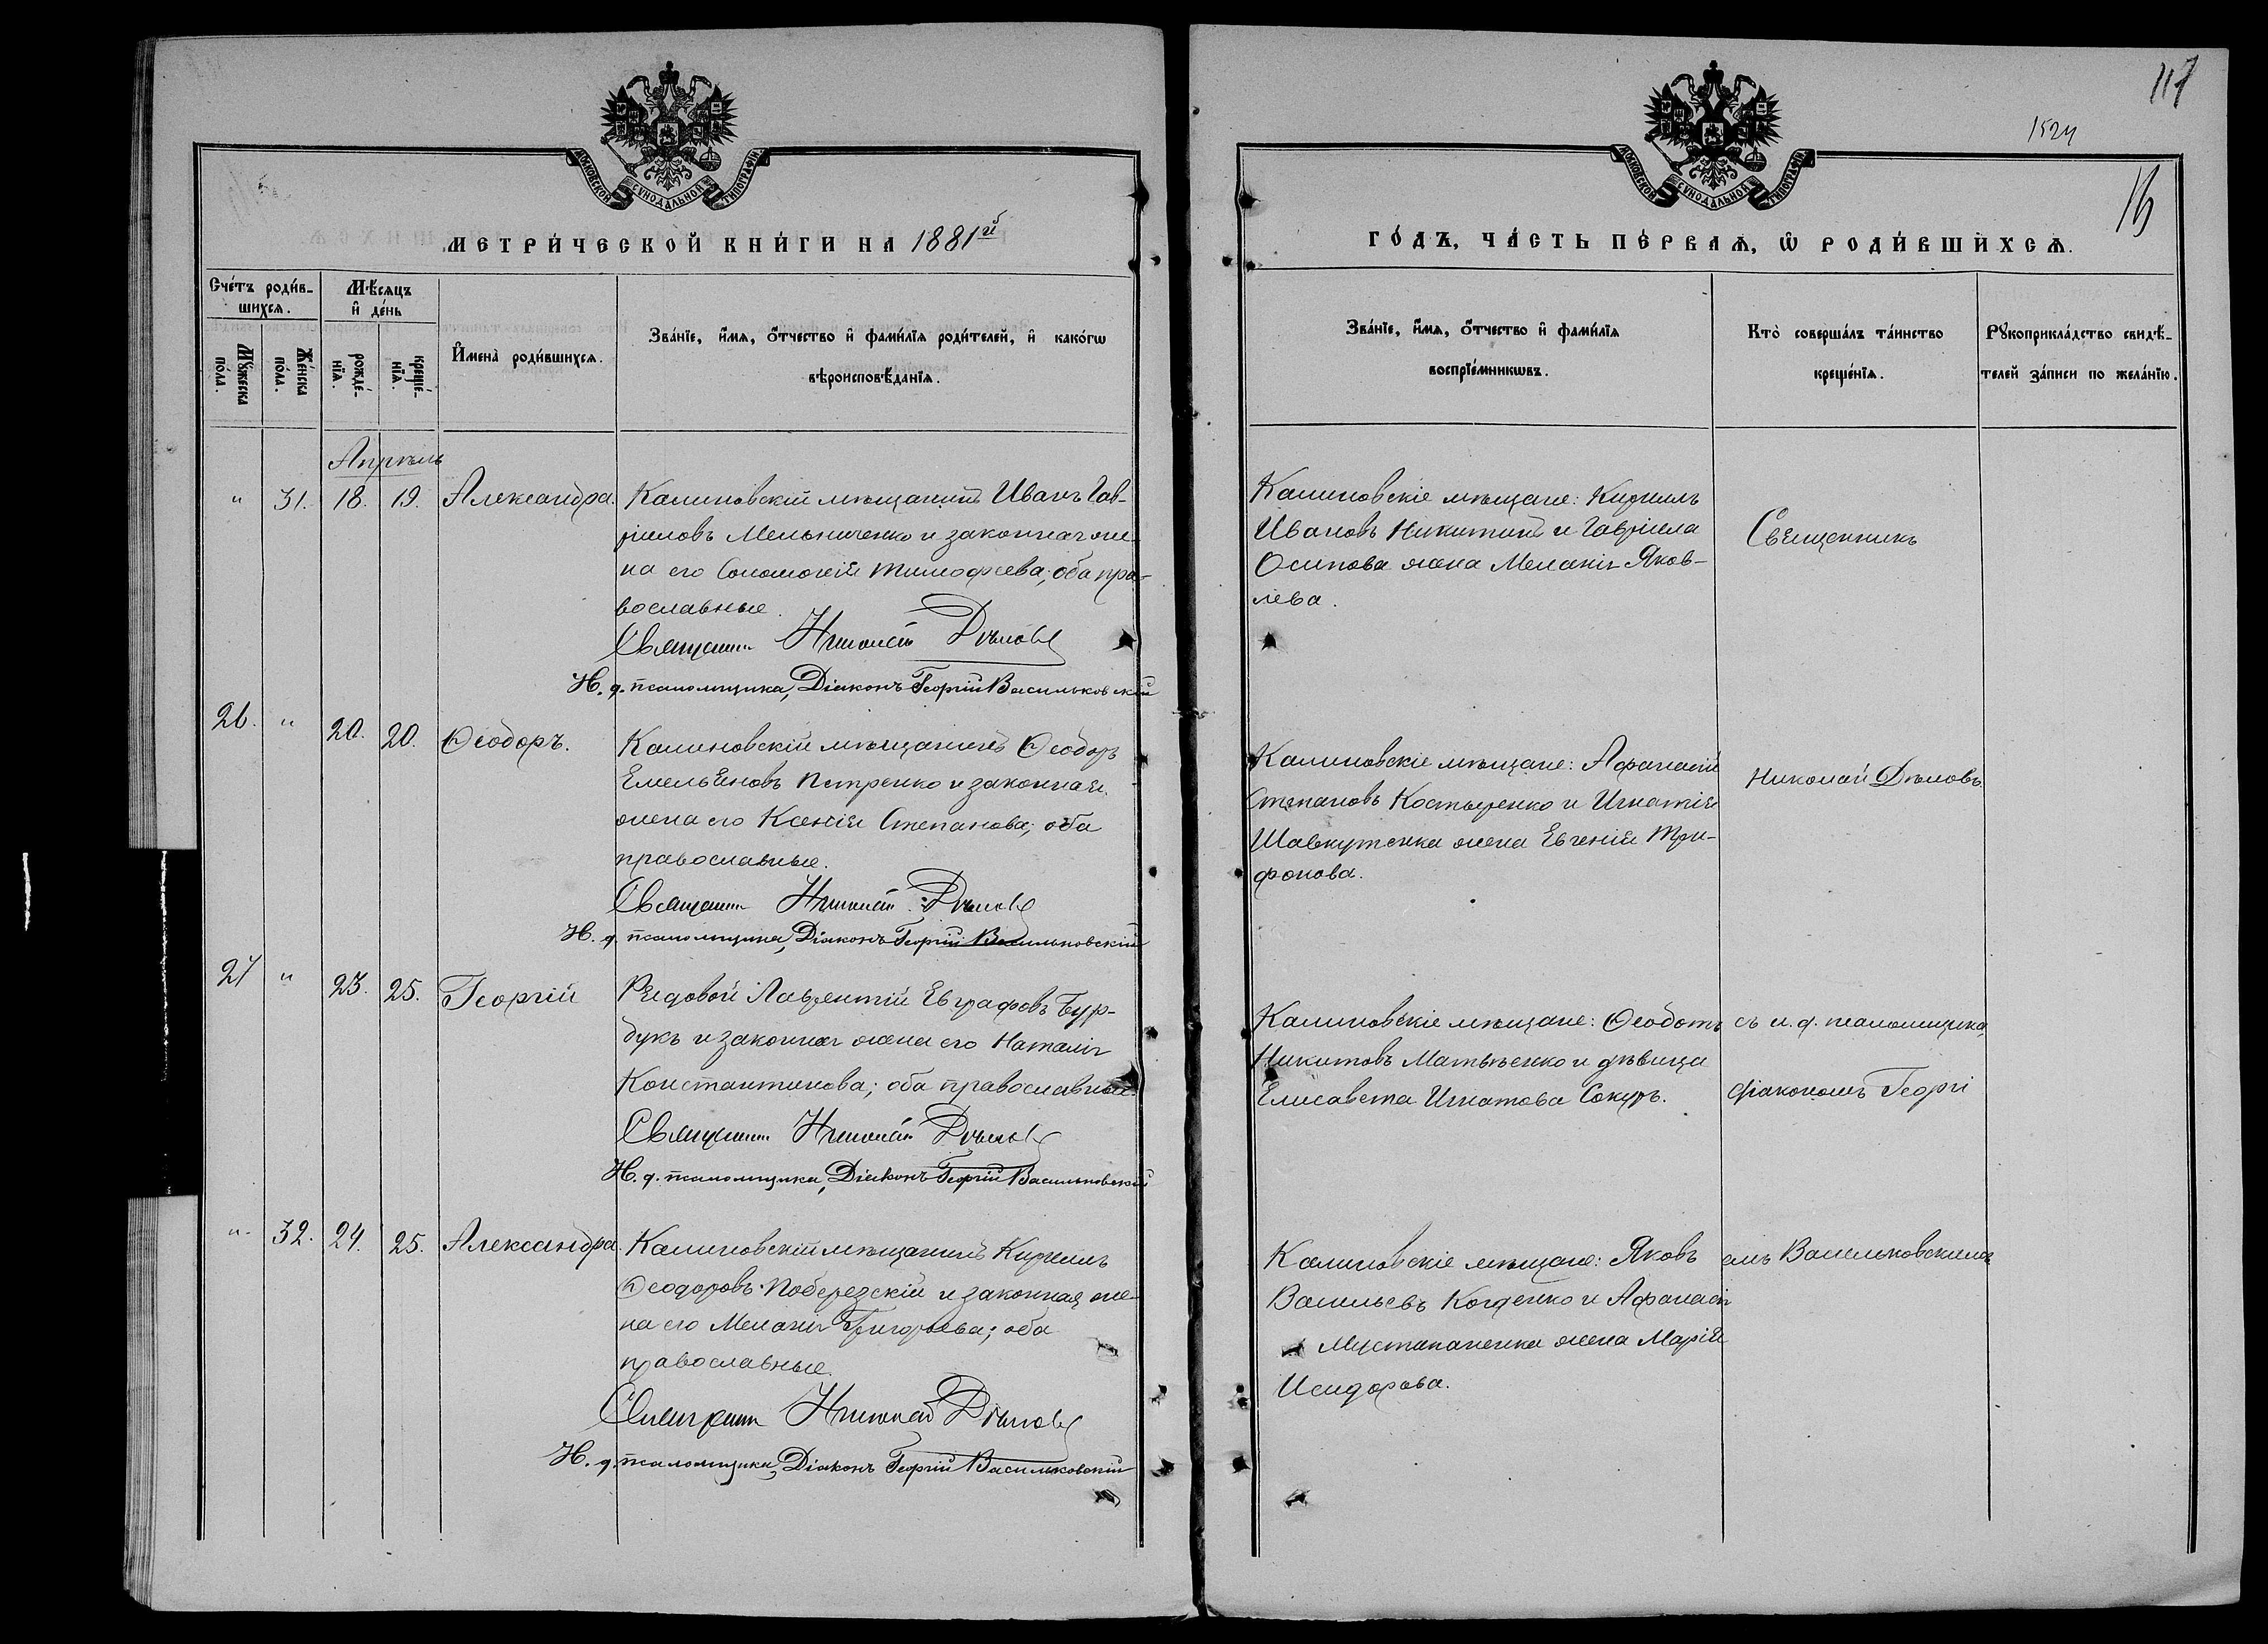 МОСКОВСКОЙ СѴНОДАЛЬНОЙ ТИПОГРАФІИ
МЕТРИ́ЧЕСКОЙ КНИ́ГИ НА 1881й
Сче́тъ роди́в-
шихсѧ.
Мѣ́сѧцъ
и҆ де́нь
Мꙋ́жеска
по́ла.
Же́нска
по́ла.
рожде́-
нїѧ.
креще́-
нїѧ.
И҆мена̀ роди́вшихсѧ.
Зва́нїе, и҆́мѧ, ѻ҆́тчество и҆ фами́лїѧ роди́телей, и҆ како́гѡ
вѣроисповѣ́данїѧ.
Апрѣль
" 31. 18. 19. Александра. Калиновскій мѣщанинъ Иванъ Гав-
ріиловъ Мельниченко и законная же-
на его Соломонія Тимофеева; оба пра-
вославные.
Священникъ Николай Дѣловъ
И. д. псаломщика, Діаконъ Георгій Васильковскій
26. " 20. 20. Ѳеодоръ. Калиновскій мѣщанинъ Ѳеодоръ
Емельяновъ Петренко и законная
жена его Ксенія Степанова; оба
православные.
Священникъ Николай Дѣловъ
И. д. псаломщика, Діаконъ Георгій Васильковскій
27 " 23. 25. Георгій Рядовой Лаврентій Евграфовъ Бур-
букъ и законная жена его Наталія
Константинова; оба православные.
Священникъ Николай Дѣловъ
И. д. псаломщика, Діаконъ Георгій Васильковскій
" 32. 24. 25. Александра. Калиновскій мѣщанинъ Кириллъ
Ѳеодоровъ Поберезскій и законная же-
на его Меланія Григорьева; оба
православные.
Священникъ Николай Дѣловъ
И. д. псаломщика, Діаконъ Георгій Васильковскій
117
1524
МОСКОВСКОЙ СѴНОДАЛЬНОЙ ТИПОГРАФІИ
ГО́ДЪ, ЧА́СТЬ ПЕ́РВАѦ, Ѡ҆ РОДИ́ВШИХСѦ.
Зва́нїе, и҆́мѧ, ѻ҆́тчество и҆ фами́лїѧ
воспрїе́мникѡвъ.
Кто̀ соверша́лъ та́инство
креще́нїѧ.
Рꙋкоприкла́дство свидѣ́-
телей за́писи по жела́нїю.
Калиновскіе мѣщане: Кириллъ
Ивановъ Никитинъ и Гавріила
Осипова жена Меланія Яков-
лева.
Священникъ
Калиновскіе мѣщане: Афанасій
Степановъ Костыренко и Игнатія
Шавкутенка жена Евгенія Три-
фонова.
Николай Дѣловъ
Калиновскіе мѣщане: Ѳеодотъ
Никитовъ Матвѣенко и дѣвица
Елисавета Игнатова Сокуръ.
съ и. д. псаломщика,
діакономъ Георгі
Калиновскіе мѣщане: Яковъ
Васильевъ Когденко и Афанасія
Мустапаненка жена Марія
Исидорова.
емъ Васильковскимъ